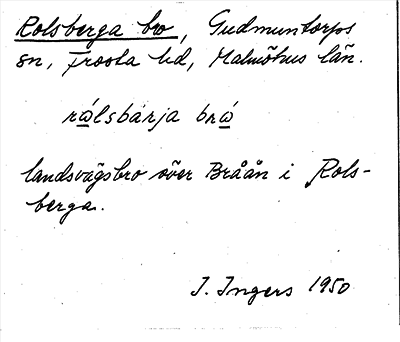 Rolsberga bro, Gudmuntorps
sn, Frosta hd, Malmöhus län.
rω̂lsbárja brώ
landsvägsbro över Bråån i Rols-
berga.
I. Ingers 1950